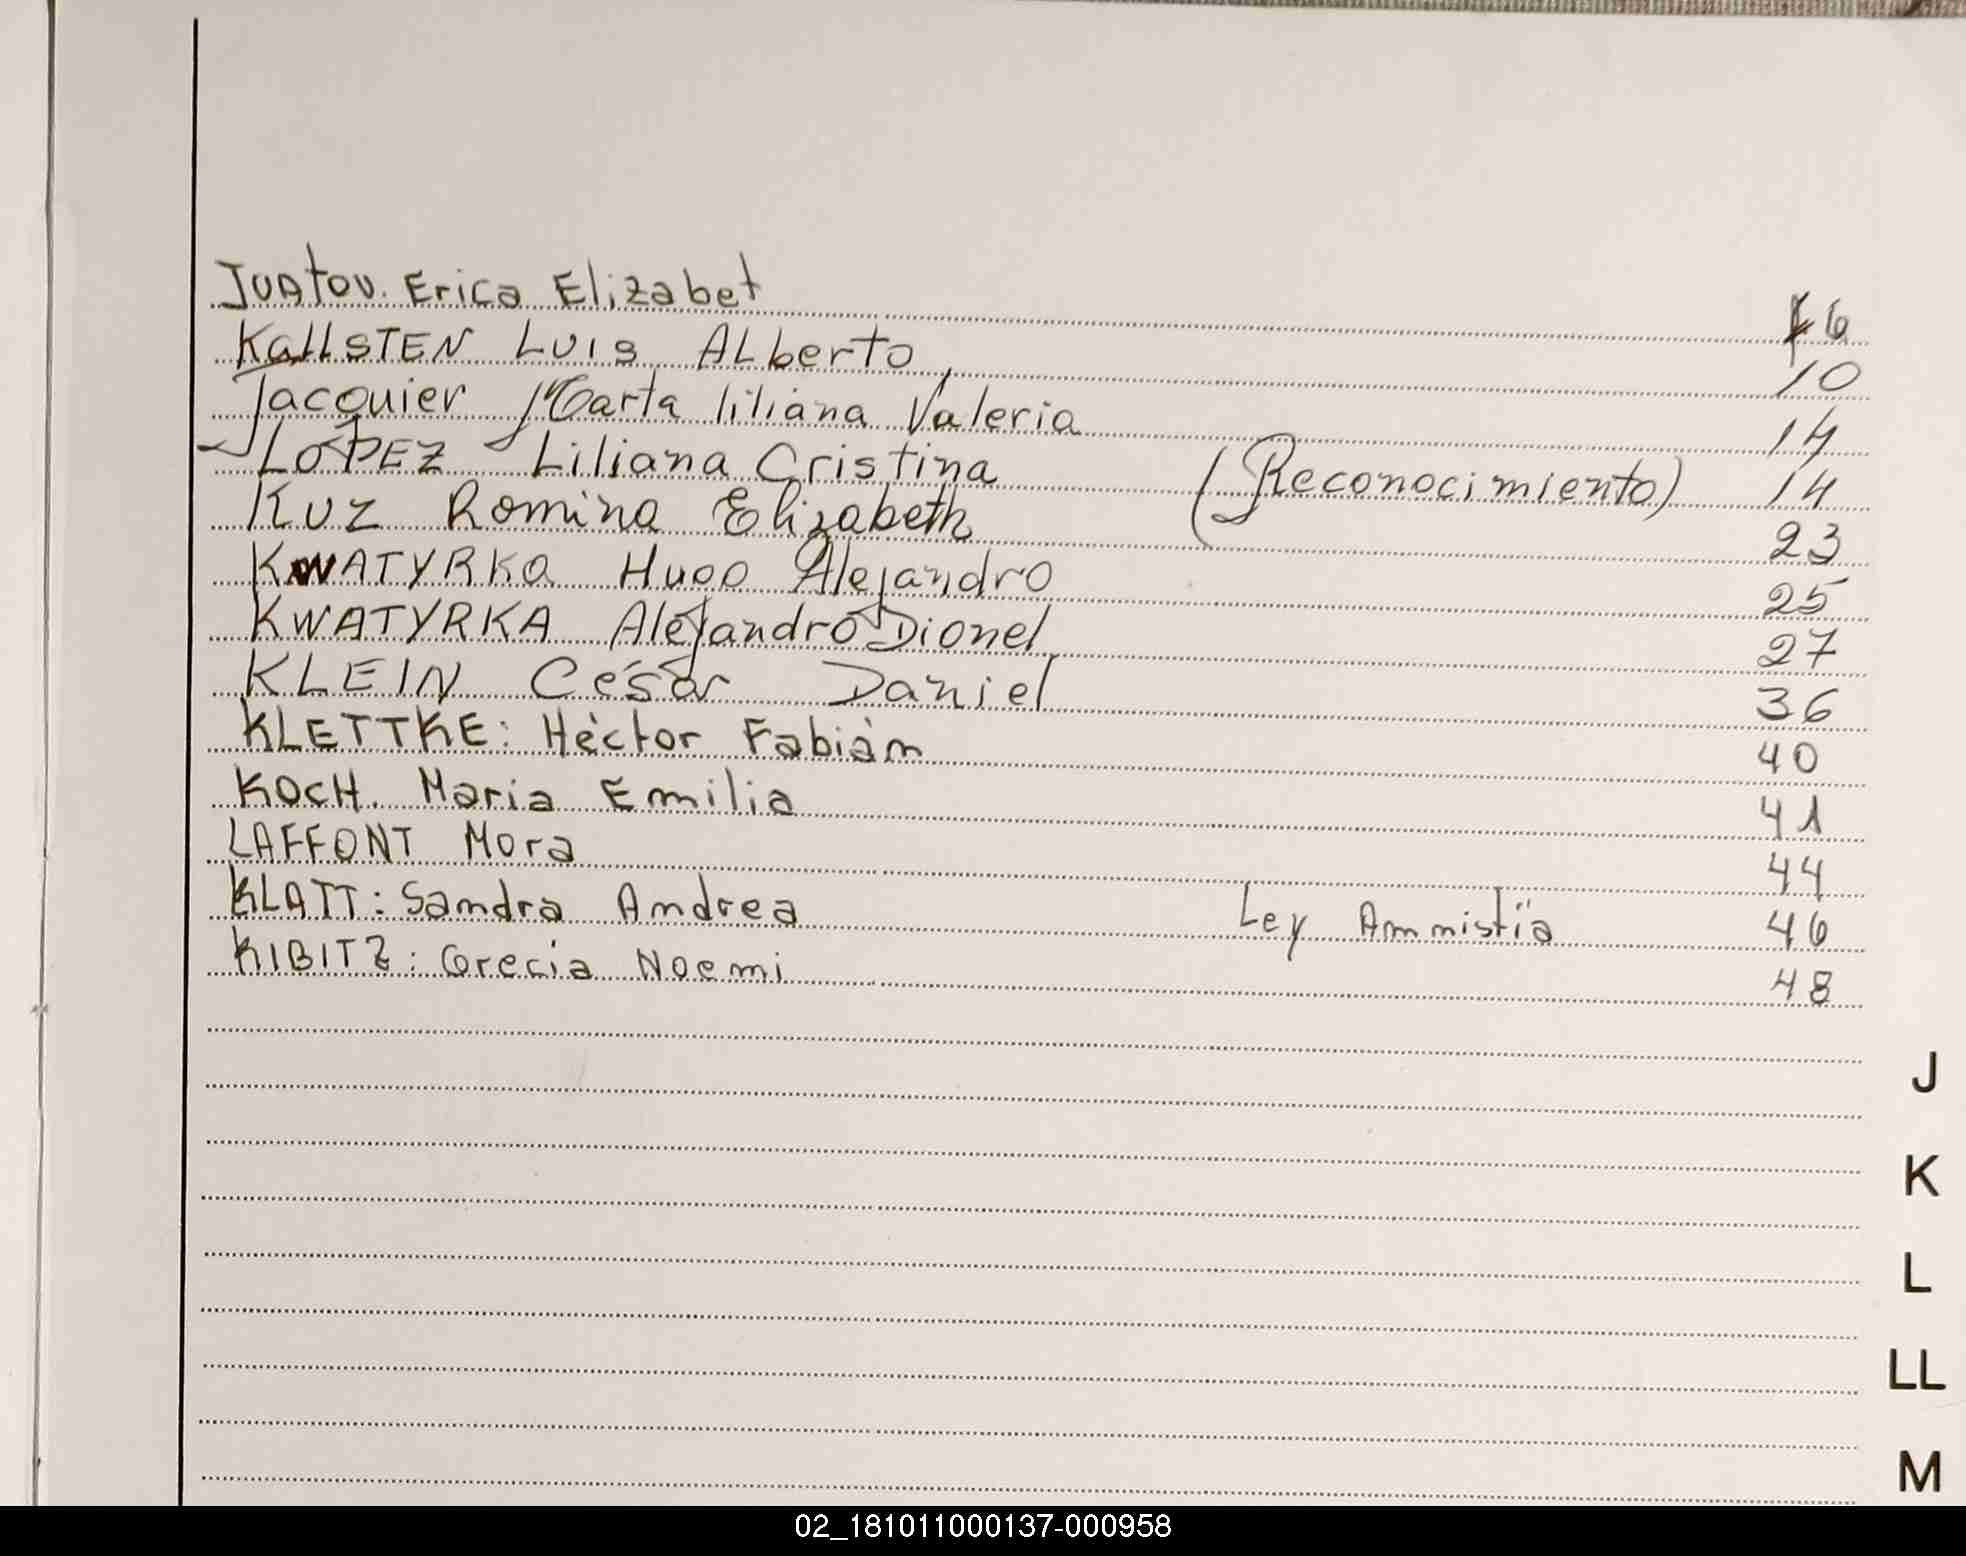 Juatou. Erica Elizabet 6
Kallsten Luis Alberto 10
Jacquier Marta liliana Valeria 14
LOPEZ Liliana Cristina (Reconocimiento) 14
KUZ Romina Elizabeth 23
KWATYRKA Hugo Alejandro 25
KWATYRKA Alejandro Dionel 27
KLEIN César Daniel 36
KLETTKE: Héctor Fabián 40
KOCH. Maria Emilia 41
LAFFONT Mora 44
KLATT: Sandra Andrea Ley Ammistia 46
KIBITZ: Grecia Noemi 48
J
K
L
LL
M
02_181011000137-000958